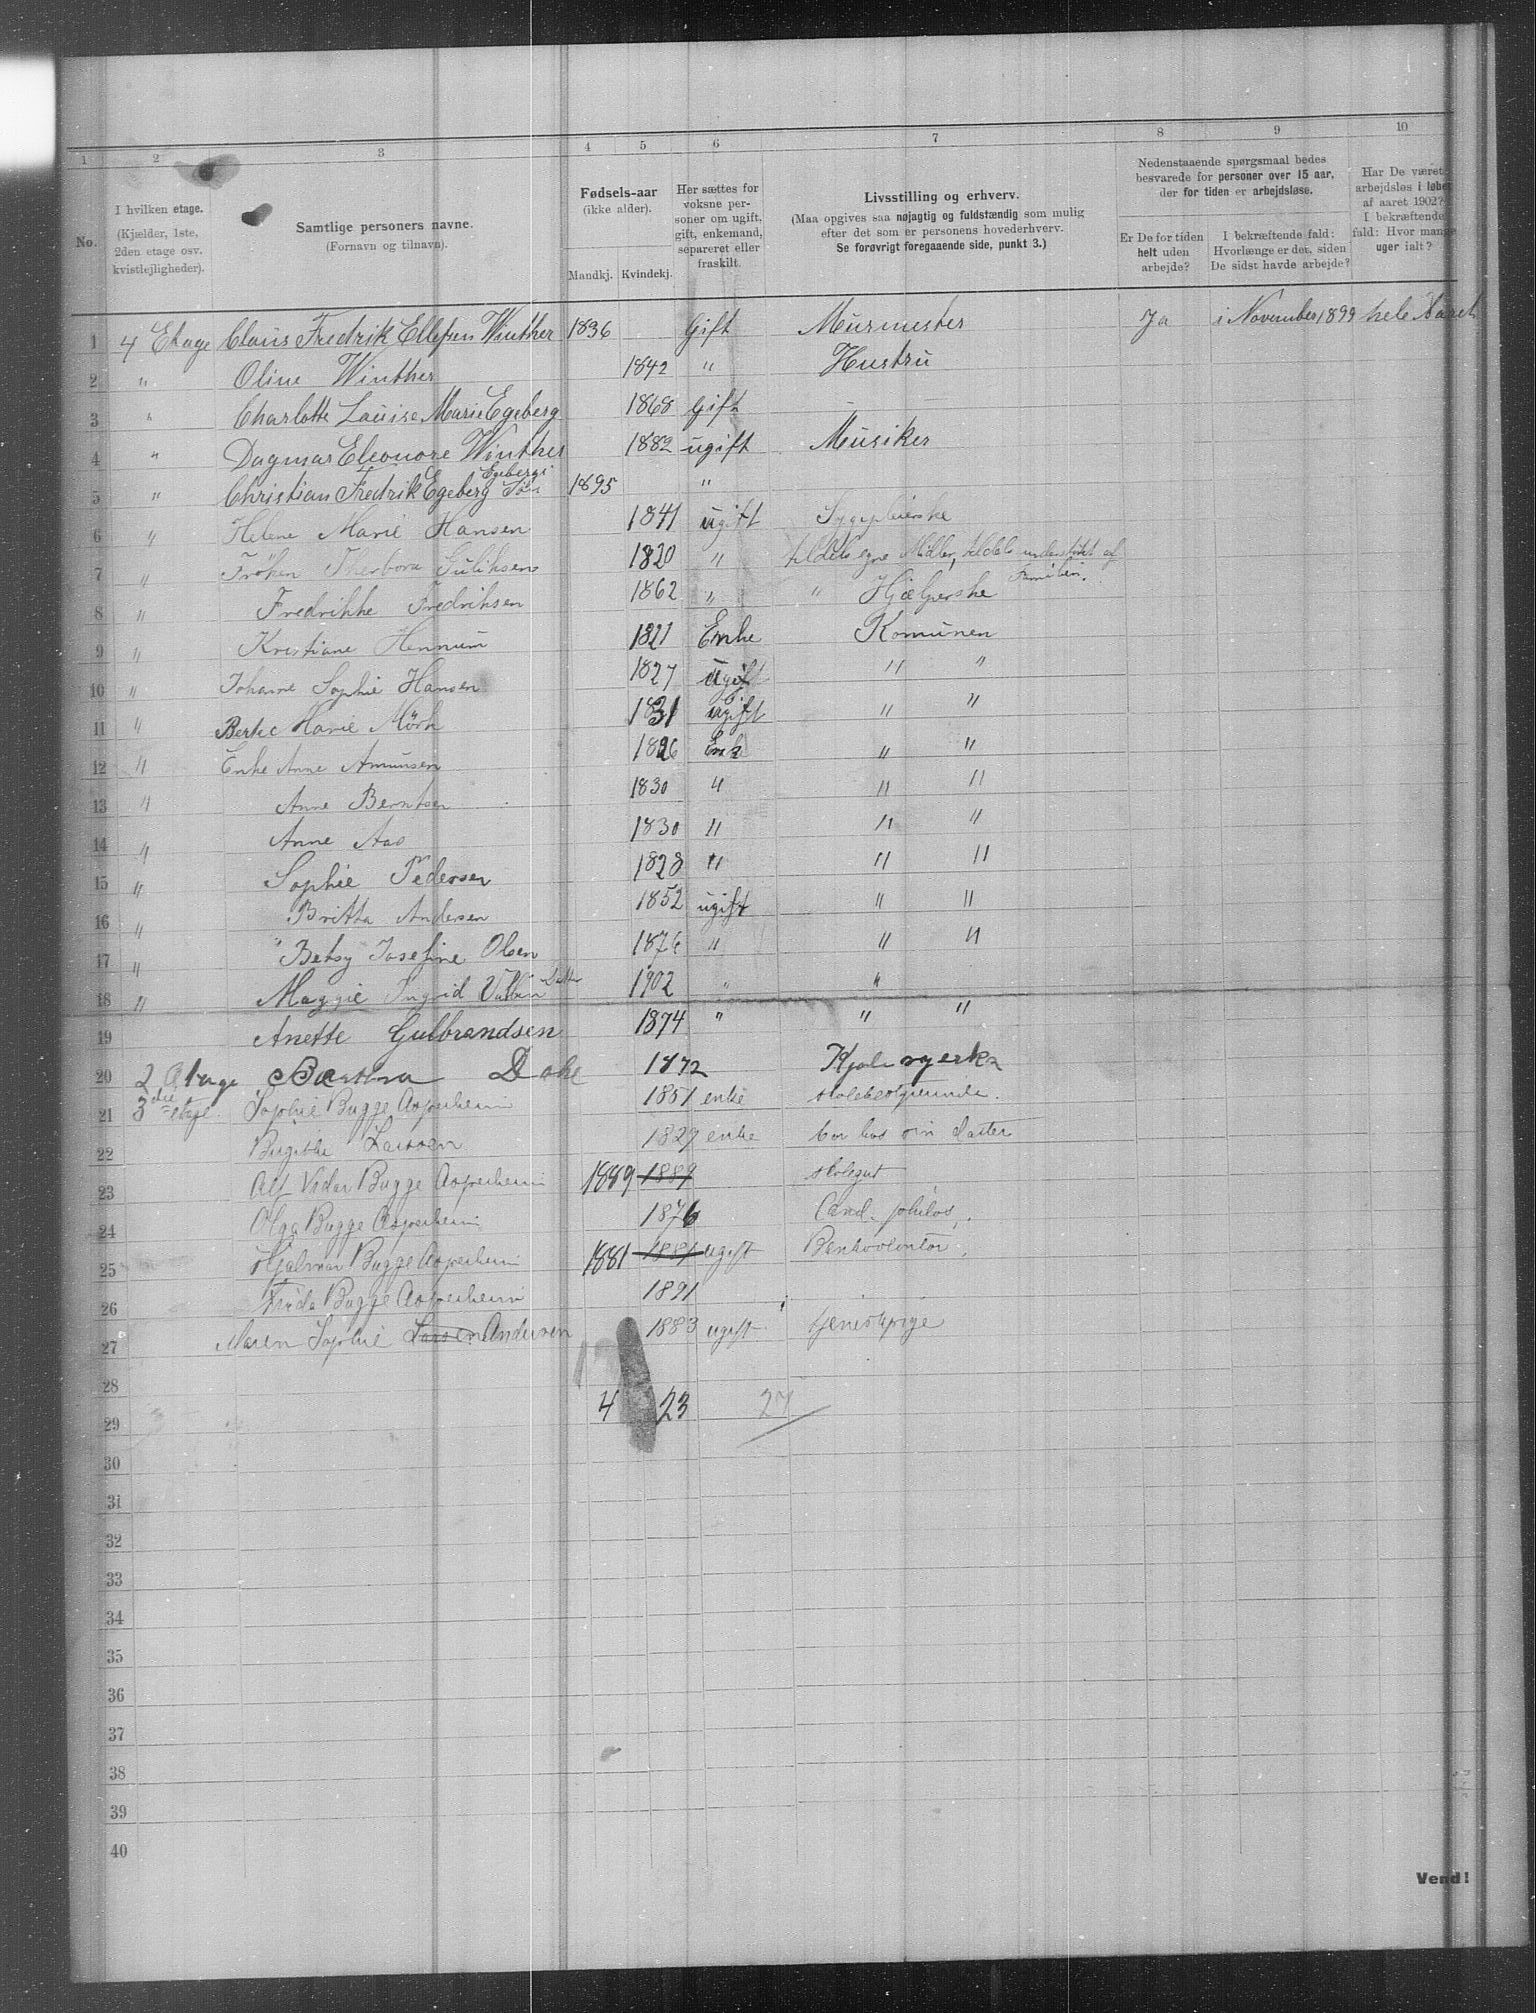 1 2 3 4 5 6 7 8 9 10
No.
I hvilken etage.
(Kjælder, 1ste,
2den etage osv.
kvistlejligheder).
Samtlige personers navne.
(Fornavn og tilnavn).
Fødsels-aar
(ikke alder).
Mandkj. Kvindekj.
Her sættes for
voksne per-
soner om ugift,
gift, enkemand,
separeret eller
fraskilt.
Livsstilling og erhverv.
(Maa opgives saa nøjagtig og fuldstændig som mulig
efter det som er personens hovederhverv.
Se forøvrigt foregaaende side, punkt 3.)
Nedenstaaende spørgsmaal bedes
besvarede for personer over 15 aar,
der for tiden er arbejdsløse.
Er De for tiden
helt uden
arbejde?
I bekræftende fald:
Hvorlænge er det, siden
De sidst havde arbejde?
Har De været
arbejdsløs i løbet
af aaret 1902?
I bekræftende
fald: Hvor mange
uger ialt?
1 4 Etage Claus Fredrik Ellefsen Winther 1836 Gift Murmester Ja i November 1899 hele Aaret
2 " Oline Winther 1842 " Hustru
3 " Charlotte Louise Marie Egeberg 1868 Gift
4 " Dagmar Eleonore Winther 1882 ugift Musiker
5 " Christian Fredrik Egeberg Egebergs Søn 1895 "
6 " Helene Marie Hansen 1841 ugift Sygepleierske
7 " Frøken 1820 " tildels egne Midler, tildels understøttet af Familien.
8 " Fredrikke Fredriksen 1862 " " Hjælperske
9 " Kristiane Hennum 1821 Enke Komunen
10 " Johanne Sophie Hansen 1827 ugift " "
11 " Marie Mörk 1831 ugift " "
12 " Enke Anne Amunsen 1826 Enke " "
13 " Anne Berntsen 1830 " " "
14 " Anne Aas 1830 " " "
15 " Sophie Pedersen 1828 " " "
16 " Britta Andersen 1852 ugift " "
17 " " Betsy Josefine Olsen 1876 " " "
18 " Maggie Ingrid Datter 1902 " "
19 Anette Gulbrandsen 1874 " " "
20 2 Etage 1872
21 3die etage Sophie Bugge Aspenheim 1851 enke skolebestyrerinde.
22 Birgitte Larssen 1829 enke bor hos sin datter
23 Alf Vidar Bugge Aspenheim 1889 1889 skolegut
24 Olga Bugge Aspenheim 1876 Cand. philos.
25 Hjalmar Bugge Aspenheim 1881 1881 ugift Bankvolontør.
26 Frida Bugge Aspenheim 1891
27 Maren Sophie Larsen Andersen 1883 ugift tjenestepige
28
29 4 23 27
30
31
32
33
34
35
36
37
38
39
40
Vend!